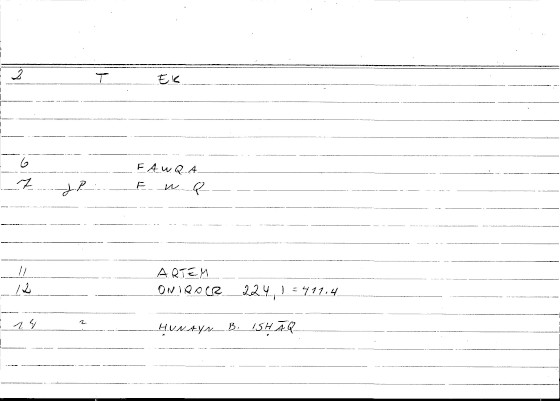 2 T EK
6 FAWQA
7 JP F W Q
11 ARTEM
12 ONIROCR 224,1 = 411.4
14 2 ḤUNAYN B. ISḤĀQ